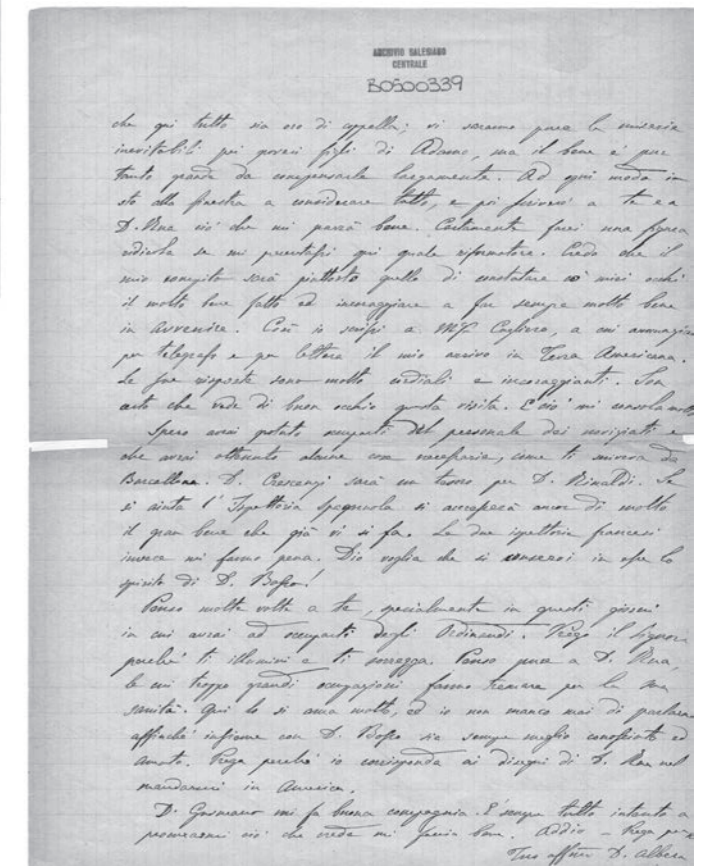 ARCHIVIO SALESIANO
CENTRALE
B0500339
che qui tutto sia oro di coppella; vi saranno pure le miserie
inevitabili pei poveri figli di Adamo, ma il bene è pur
tanto grande da compensarle largamente. Ad ogni modo io
sto alla finestra a considerare tutto, e poi scriverò a te e a
D. Rua ciò che mi parrà bene. Certamente farei una figura
ridicola se mi presentassi qui quale riformatore. Credo che il
mio compito sarà piuttosto quello di constatare co' miei occhi
il molto bene fatto ed incoraggiare a far sempre molto bene
in avvenire. Così io scrissi a Mgr Cagliero, a cui annunziai
per telegrafo e per lettera il mio arrivo in Terra Americana.
Le sue risposte sono molto cordiali e incoraggianti. Son
certo che vede di buon occhio questa visita. E ciò mi consola molto
Spero avrai potuto occuparti del personale dei noviziati e
che avrai ottenuto alcune cose necessarie, come ti scriveva da
Barcellona. D. Crescenzi sarà un tesoro per D. Rinaldi. Se
si aiuta l'Ispettoria Spagnuola si accrescerà ancor di molto
il gran bene che già vi si fa. Le due ispettorie francesi
invece mi fanno pena. Dio voglia che si conservi in esse lo
spirito di D. Bosco!
Penso molte volte a te, specialmente in questi giorni
in cui avrai ad occuparti degli Ordinandi. Prego il Signore
perché ti illumini e ti sorregga. Penso pure a D. Rua,
le cui troppo grandi occupazioni fanno tremare per la sua
sanità. Qui lo si ama molto, ed io non manco mai di parlarne
affinché insieme con D. Bosco sia sempre meglio conosciuto ed
amato. Prega perché io corrisponda ai disegni di D. Rua nel
mandarmi in America.
D. Gusmano mi fa buona compagnia. È sempre tutto intento a
procurarmi ciò che crede mi faccia bene. Addio – Prega per
Tuo affmo D. Albera